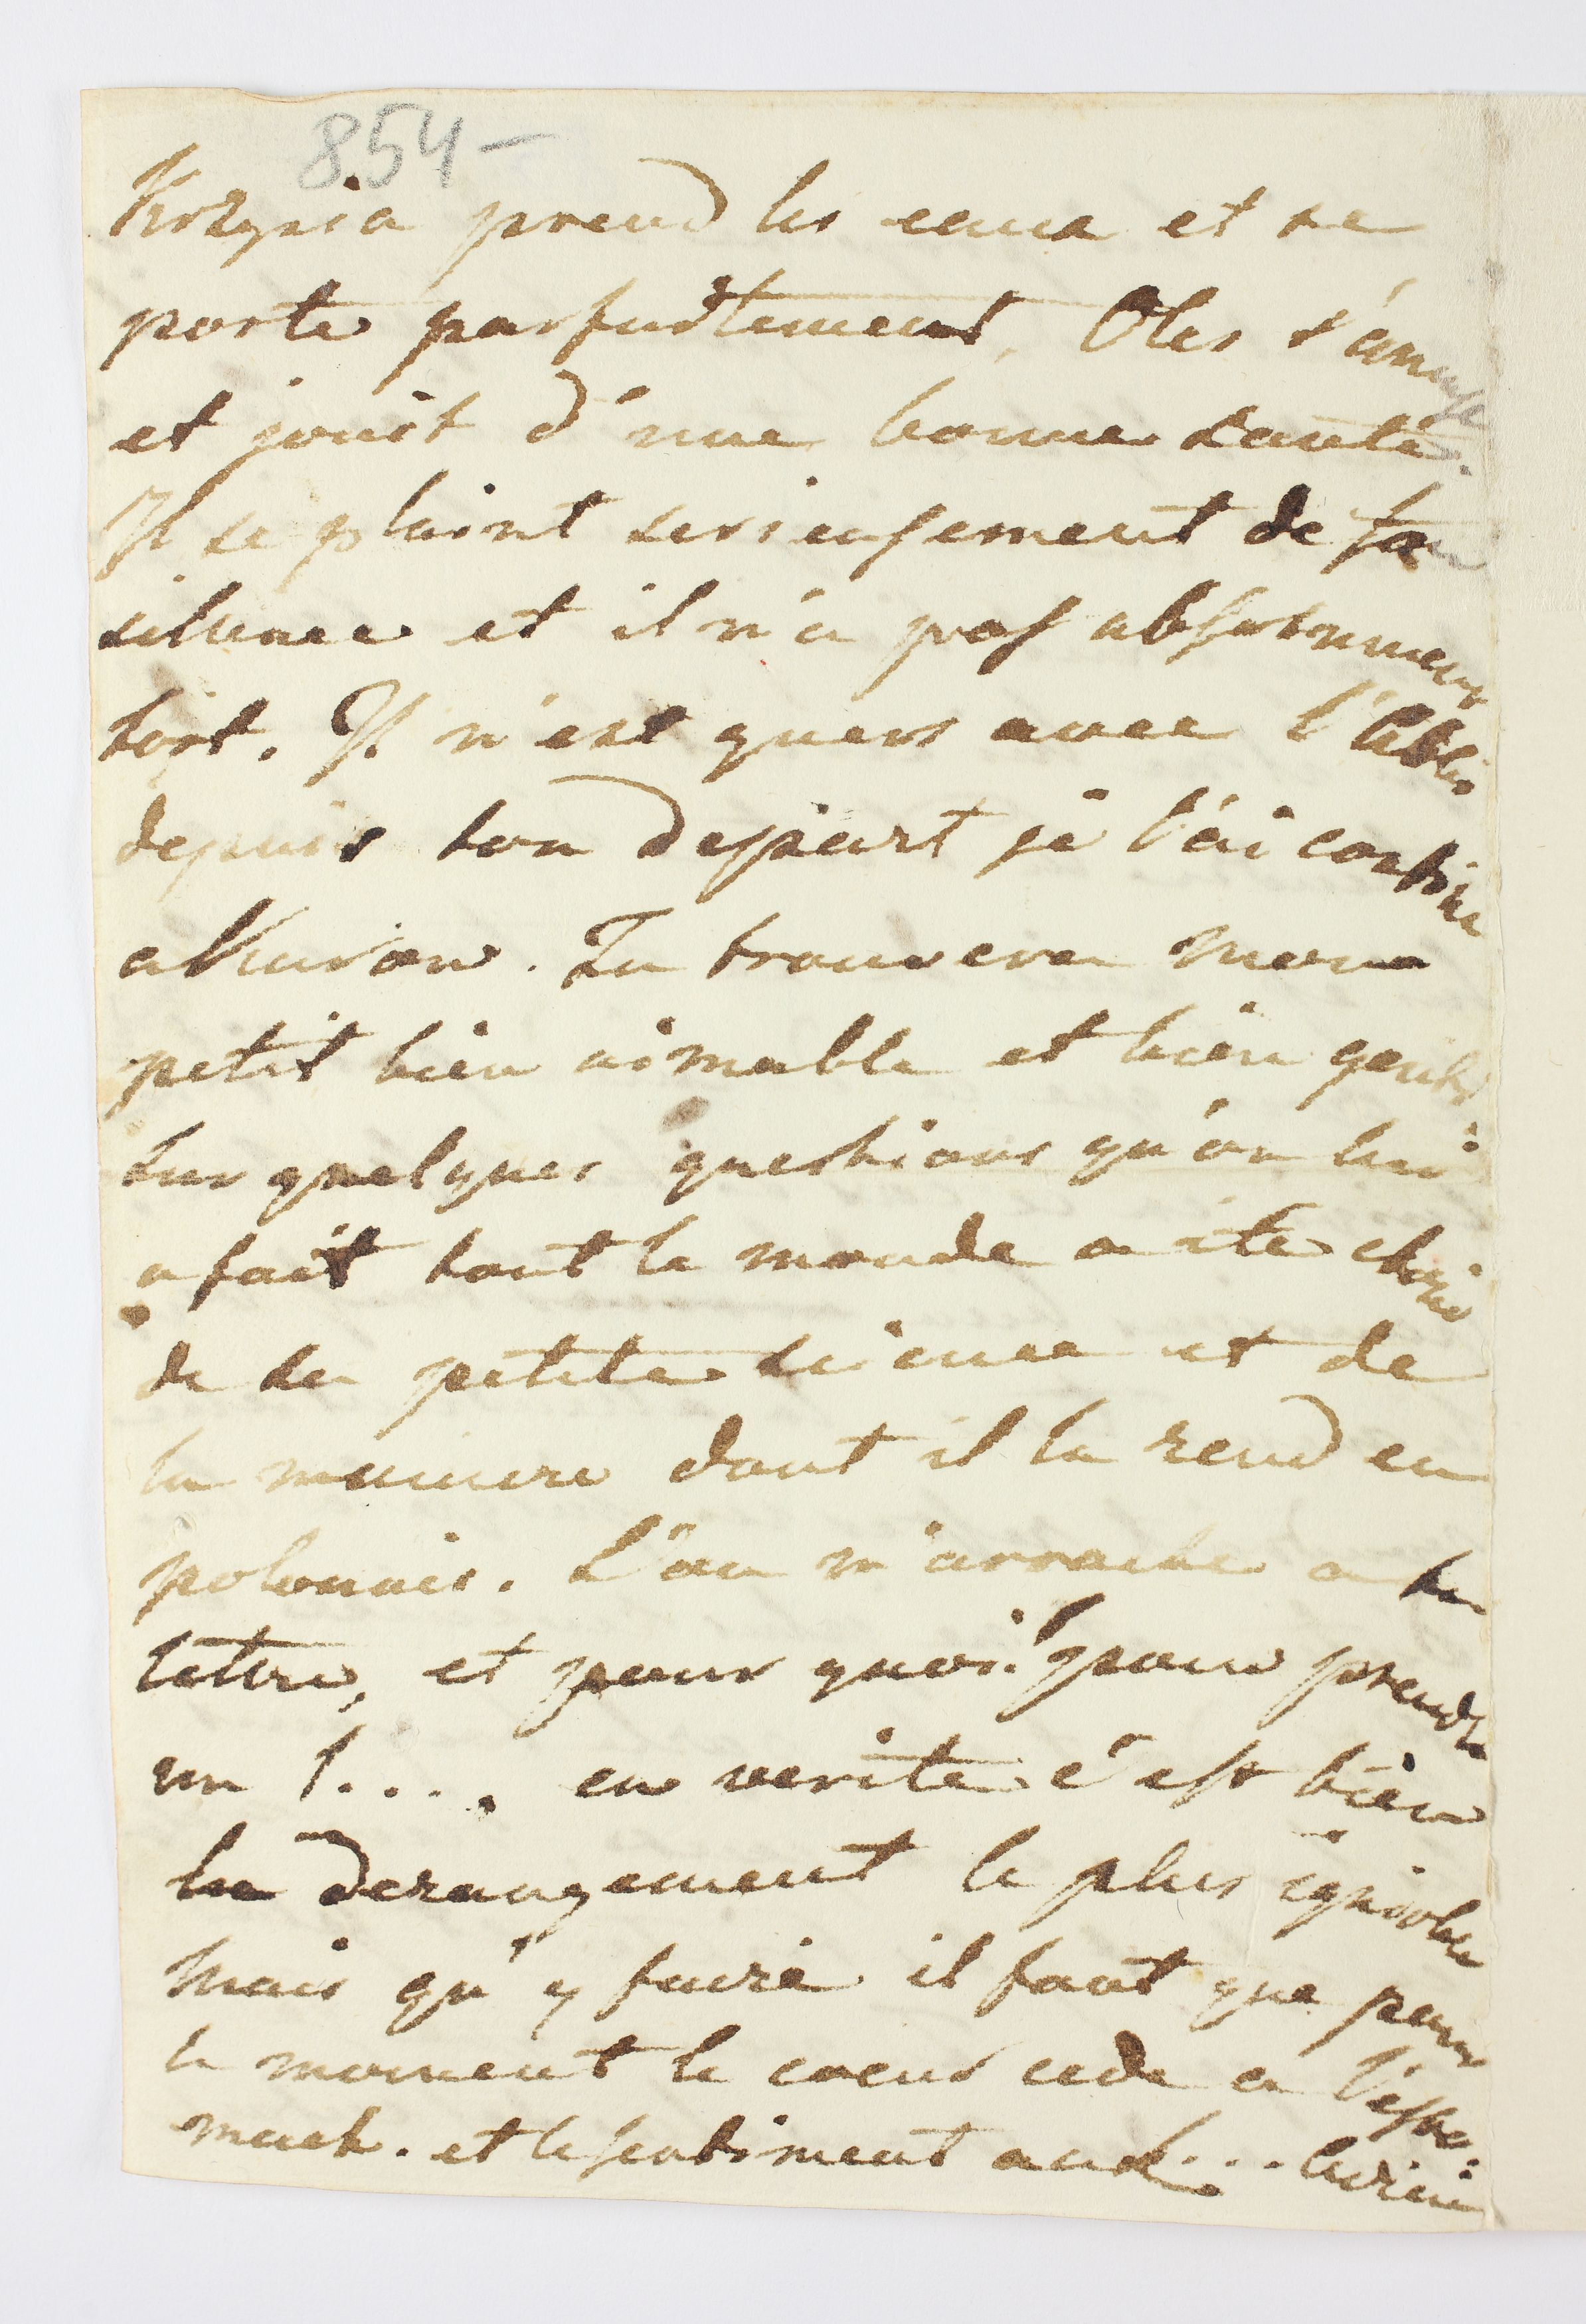 854 -
Krzysia prend les eaux et se
porte parfaitement, Oles s'amuse
et jouit d'une bonne santé.
Il se plaint serieusement de ton
silence et il n'a pas absolument
tort. Il n'est guers avec l'Abbé
depuis ton depart je l'ai
a Kurow. Tu trouvera mon
petit bien aimable et bien gentil
sur quelques questions qu'on lui
a fait tout le monde a ete
de sa petite science et de
la maniere dont il la rend en
polonais. L'on m'arrache a ta
lettre, et pour quoi! pour prendre
un l.... en verite c'est bien
le derangement le plus ignoble
mais qu'y faire il faut que pour
le moment le coeur cede a l'esto:
mack. et le sentiment aux...